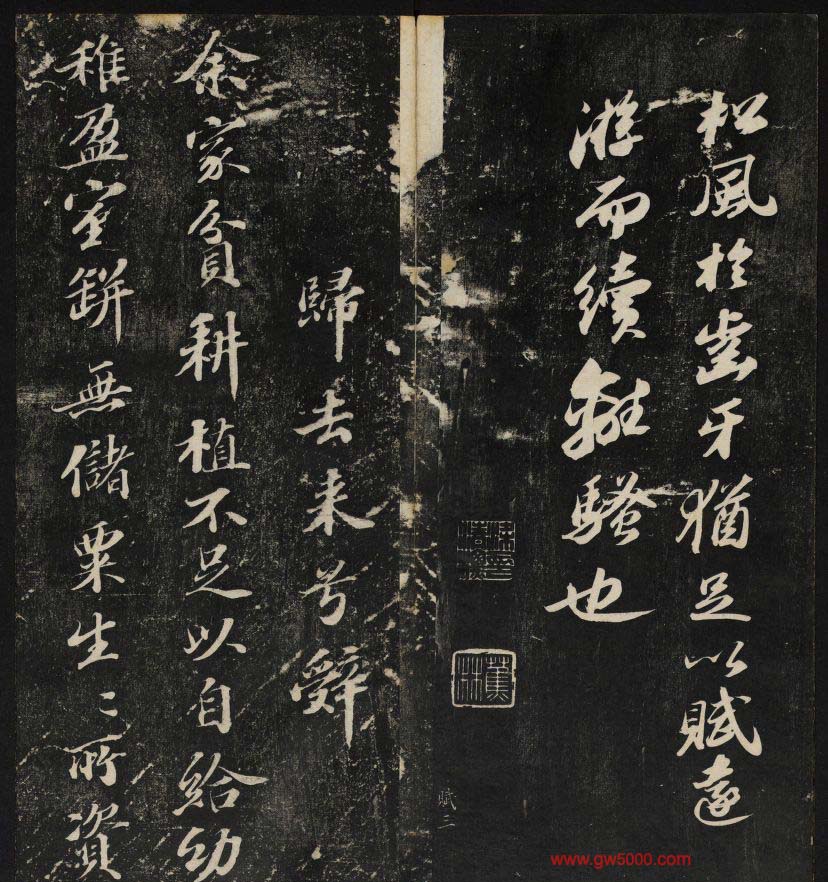 松風於齒牙猶足以賦遠
游而續離騷也
賦二
歸去來兮辭
余家貧耕植不足以自給幼
稚盈室缾無儲粟生〻所資
www.gw5000.com